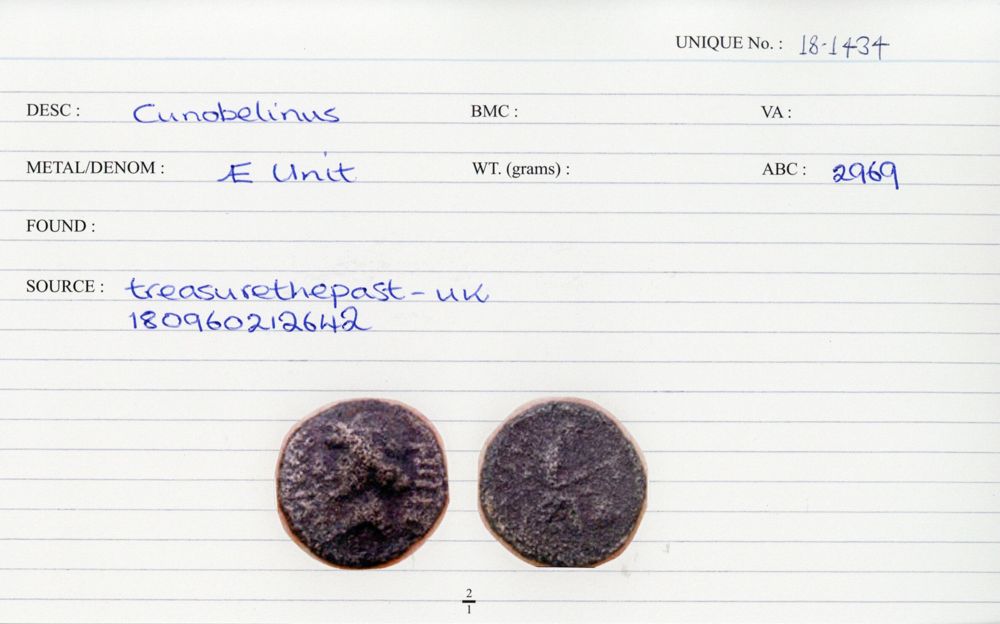 UNIQUE No. : 18-1434
DESC : Cunobelinus BMC : VA :
METAL/DENOM : Æ Unit WT. (grams) : ABC : 2969
FOUND :
SOURCE : treasurethepast-uk
180960212642
2
1